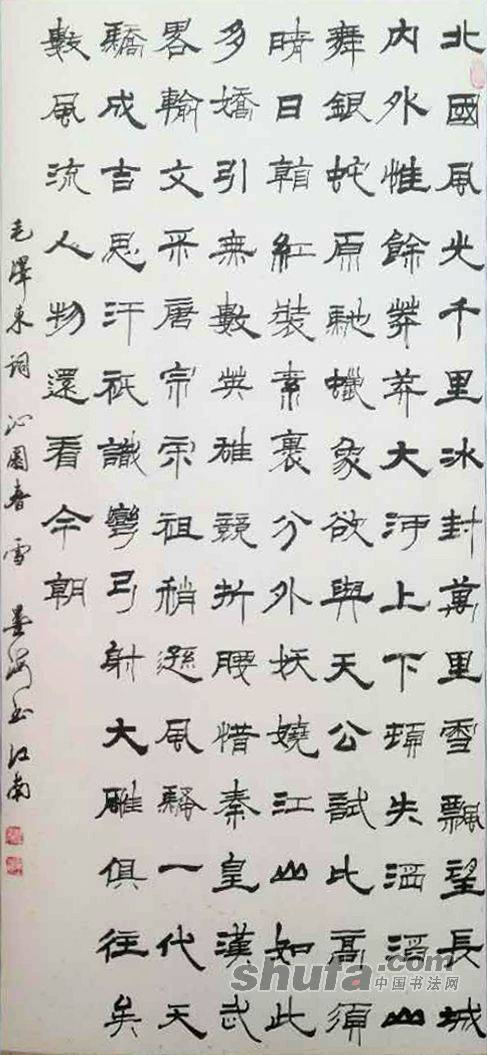 北國風光千里冰封萬里雪飄望長城
内外惟餘莽莽大河上下頓失滔滔山
舞銀蛇原馳蠟象欲與天公試比高須
晴日看紅裝素裹分外妖嬈江山如此
多嬌引無數英雄競折腰惜秦皇漢武
畧輸文采唐宗宋祖稍遜風騷一代天
驕成吉思汗祇識彎弓射大雕俱往矣
數風流人物還看今朝
毛澤東詞 沁園春雪 墨海书江南
shufa.com
中国书法网